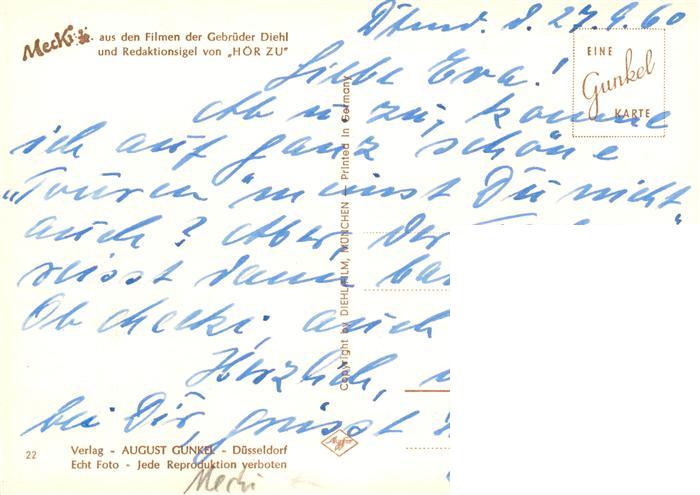 Mecki aus den Filmen der Gebrüder Diehl
und Redaktionsigel von „HÖR ZU"
EINE
Gunkel
KARTE
Dtmd. d. 27.9.60
Liebe Eva!
Ab u. zu, komme
ich auf ganz schöne
"Touren" meinst Du nicht
auch? Aber, der
reisst dann
Ob Mecki, auch
Herzlich,
bei Dir, grüsst
Copyright by DIEHL-FILM, MÜNCHEN — Printed in Germany
Agfa
22
Verlag - AUGUST GUNKEL - Düsseldorf
Echt Foto - Jede Reproduktion verboten
Mecki